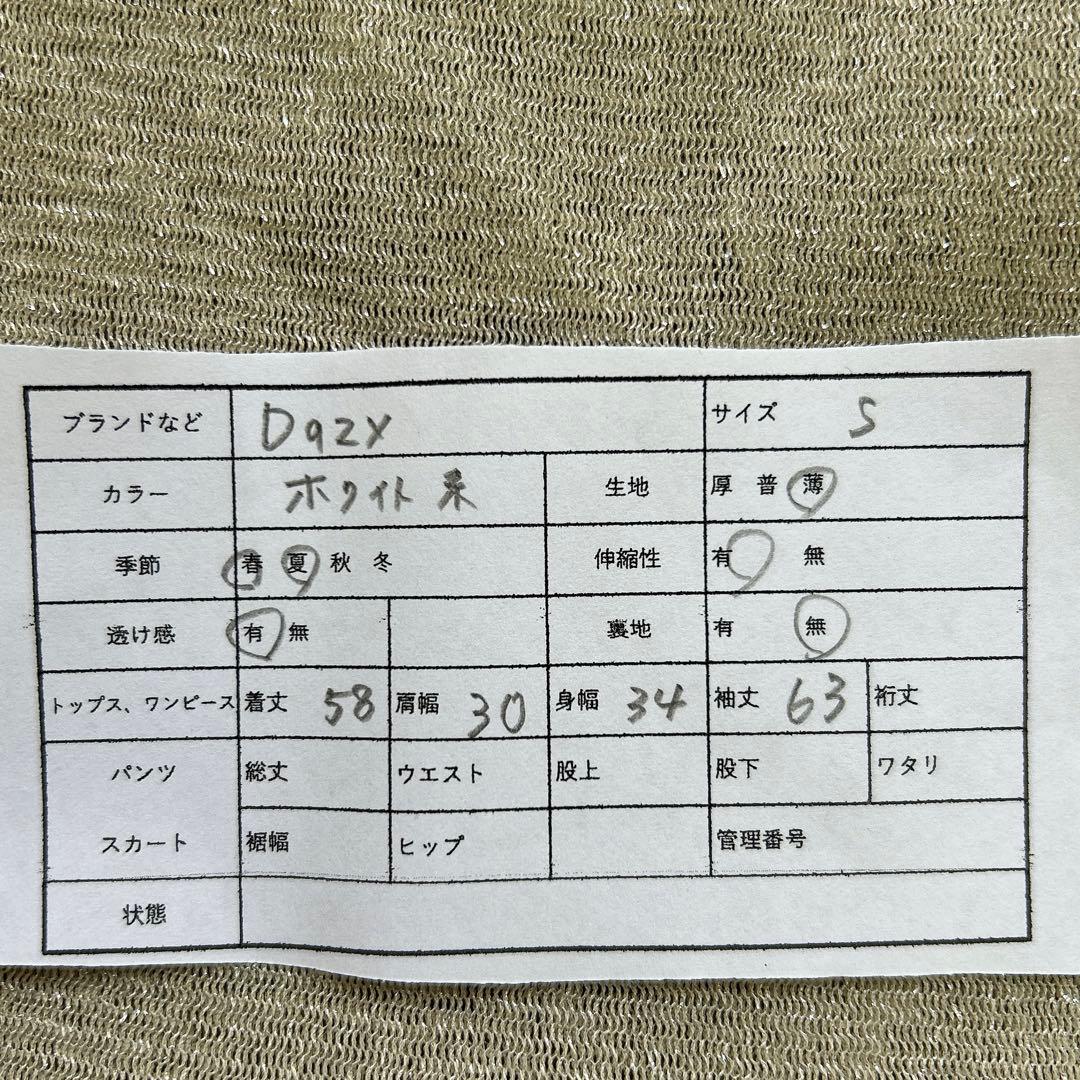 ブランドなど Dazy サイズ S
カラー ホワイト系 生地 厚 普 薄
季節 春 夏 秋 冬 伸縮性 有 無
透け感 有 無 裏地 有 無
トップス、ワンピース 着丈 58 肩幅 30 身幅 34 袖丈 63 裄丈
パンツ 総丈 ウエスト 股上 股下 ワタリ
スカート 裾幅 ヒップ 管理番号
状態